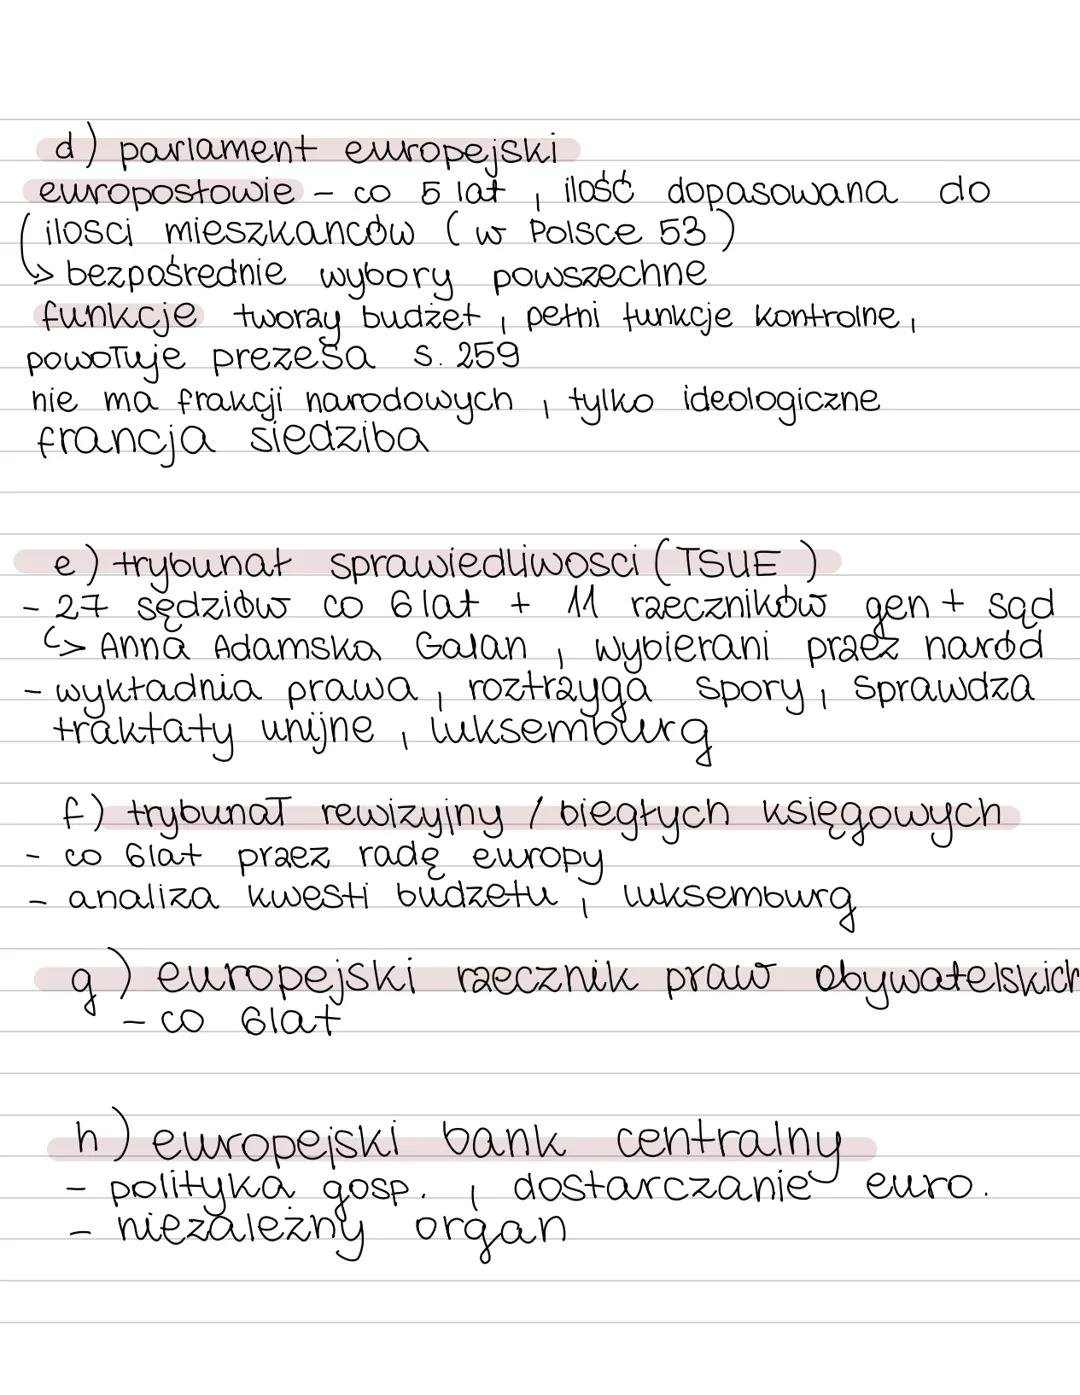 d) parlament europejski
europosłowie - co 5 lat, ilość dopasowana do
ilosci mieszkanców (w Polsce 53)
↳ bezpośrednie wybory powszechne
funkcje tworzy budżet, pełni funkcje kontrolne,
powołuje prezesa s. 259
nie ma frakcji narodowych, tylko ideologiczne
francja siedziba
e) trybunał sprawiedliwosci (TSUE)
- 27 sędziów co 6 lat + 11 rzeczników gen + sąd
↳ Anna Adamska Galan, wybierani przez naród
- wykładnia prawa, roztrzyga spory, sprawdza
traktaty unijne, luksemburg
f) trybunał rewizyjny / biegłych księgowych
- co 6lat przez radę europy
- analiza kwesti budzetu, luksemburg
g) europejski rzecznik praw obywatelskich
- co 6lat
h) europejski bank centralny
- polityka gosp., dostarczanie euro.
- niezależny organ